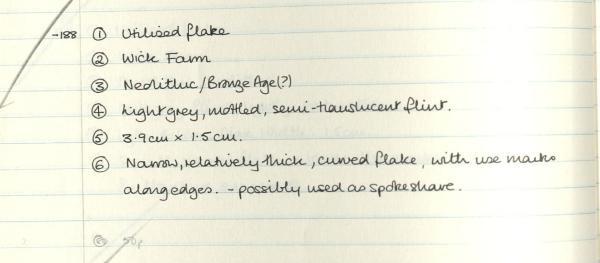 -188 ① Utilised flake
② Wick Farm
③ Neolithic/Bronze Age(?)
④ Light grey, mottled, semi-translucent flint.
⑤ 3.9cm x 1.5cm.
⑥ Narrow, relatively thick, curved flake, with use marks
along edges. - possibly used as spokeshave.
⑥ 50p